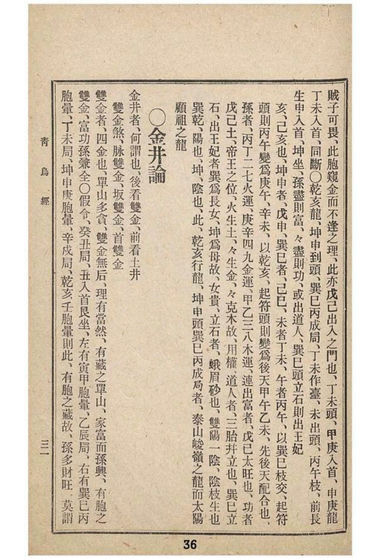 賊子可畏、此胞窺金而不逢之理、此亦戊己出人之門也、丁未頭、甲庚入首、申庚龍
丁未入首、同斷〇乾亥龍、坤申到頭、巽巳丙成局、丁未作臺、未出頭、丙午枝、前長
生申入首、坤坐、孫盡則富、々盡則功、或出道人、巽巳頭立石則出王妃
亥、己亥也、坤申者、戊申、巽巳者、己巳、未者丁未、午者丙午、以巽巳枝交、起符
頭則丙午變爲庚午、辛未、以乾亥、起符頭則變爲後天甲午乙未、先後天配合也、
孫者、丙丁二七火運、庚辛四九金運、甲乙三八木運、連出富者、戊己太旺也、功者
戊己土、帝王之位、火生土、々生金、々克木故、用權、道人者、三胎幷立也、巽巳立
石、出王妃者、巽爲長女、坤爲母故、女貴、立石者、蛾眉砂也、雙陽一陰、陰枝生也
巽乾、陽也、坤、陰也、此、乾亥行龍、坤申頭巽巳丙成局者、泰山峻嶺之龍而太陽
顧祖之龍
〇金井論
金井者、何謂也、後看雙金、前看土井
雙金煞、脉雙金、坂雙金、首雙金
雙金者、四金也、單山多貪、雙金無后、理有當然、有藏之單山、家富而孫興、有胞之
雙金、富功孫兼全〇假令、癸丑局、丑入首艮坐、左有寅甲胞暈、乙辰局、右有巽巳丙
胞暈、丁未局、坤申庚胞暈、辛戌局、乾亥壬胞暈則此、有胞之藏故、孫多財旺、莫謂
靑烏經
三一
36